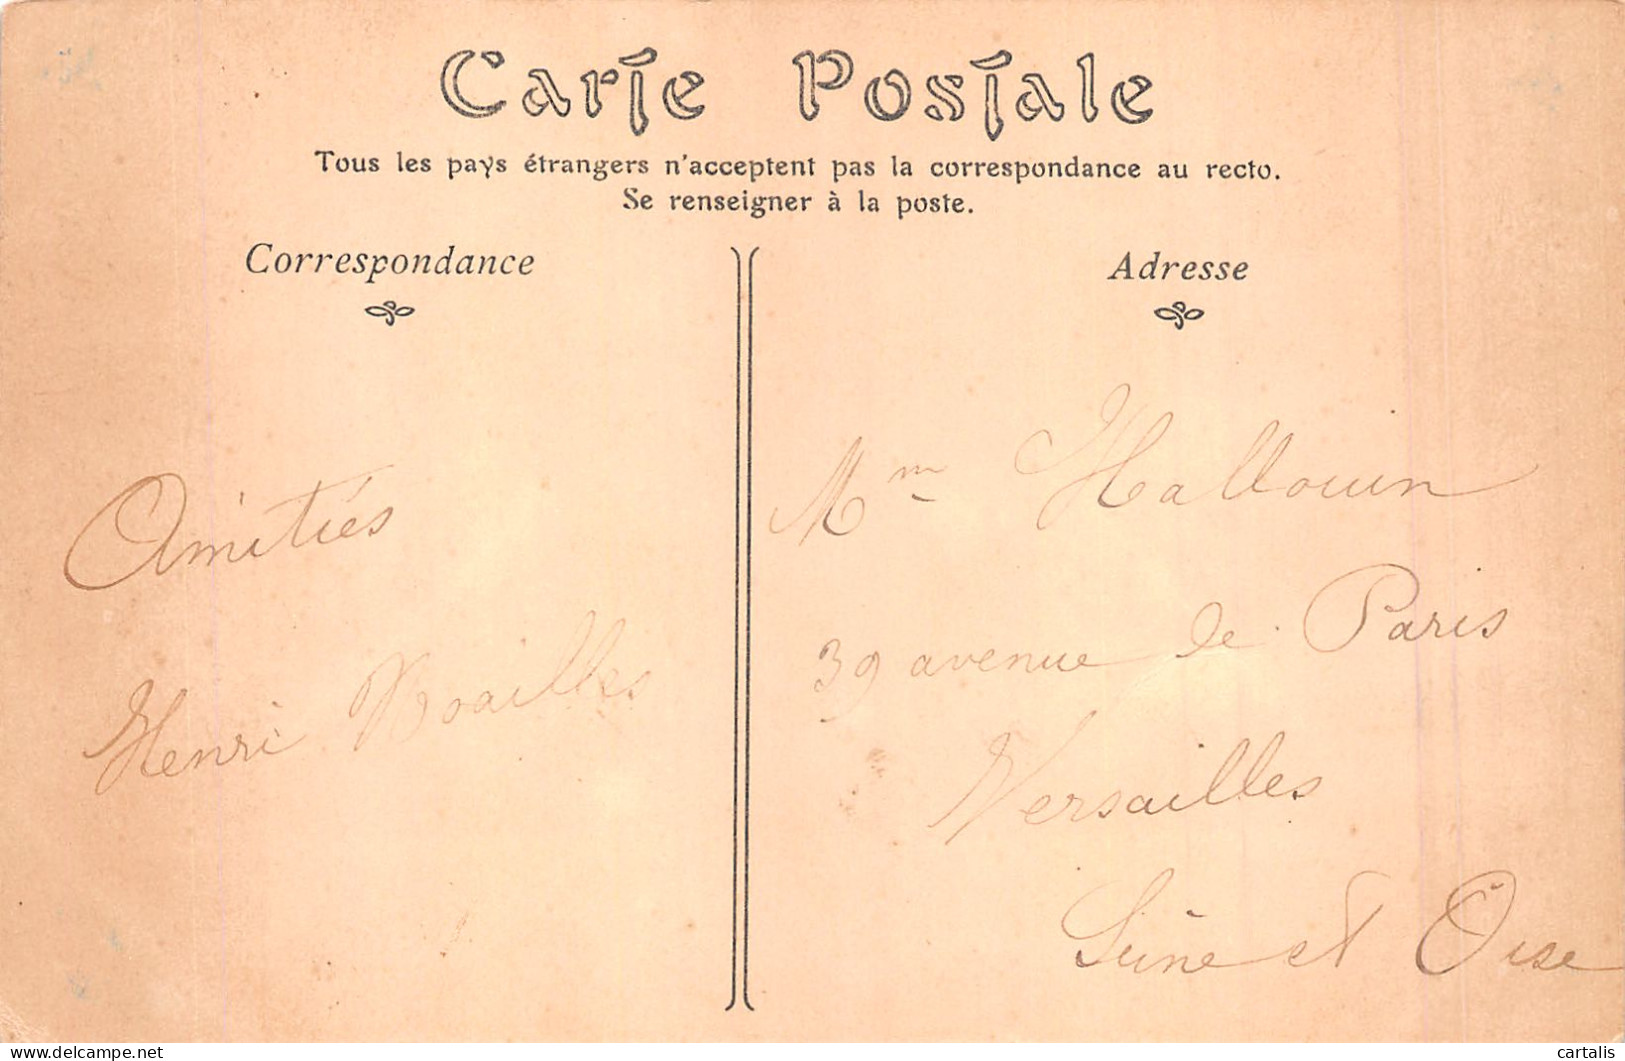 Carte Postale
Tous les pays étrangers n'acceptent pas la correspondance au recto.
Se renseigner à la poste.
Correspondance
Adresse
Amitiés
Henri Noailles
Mm Hallouin
39 avenue de Paris
Versailles
Seine et Oise
delcampe.net
cartalis